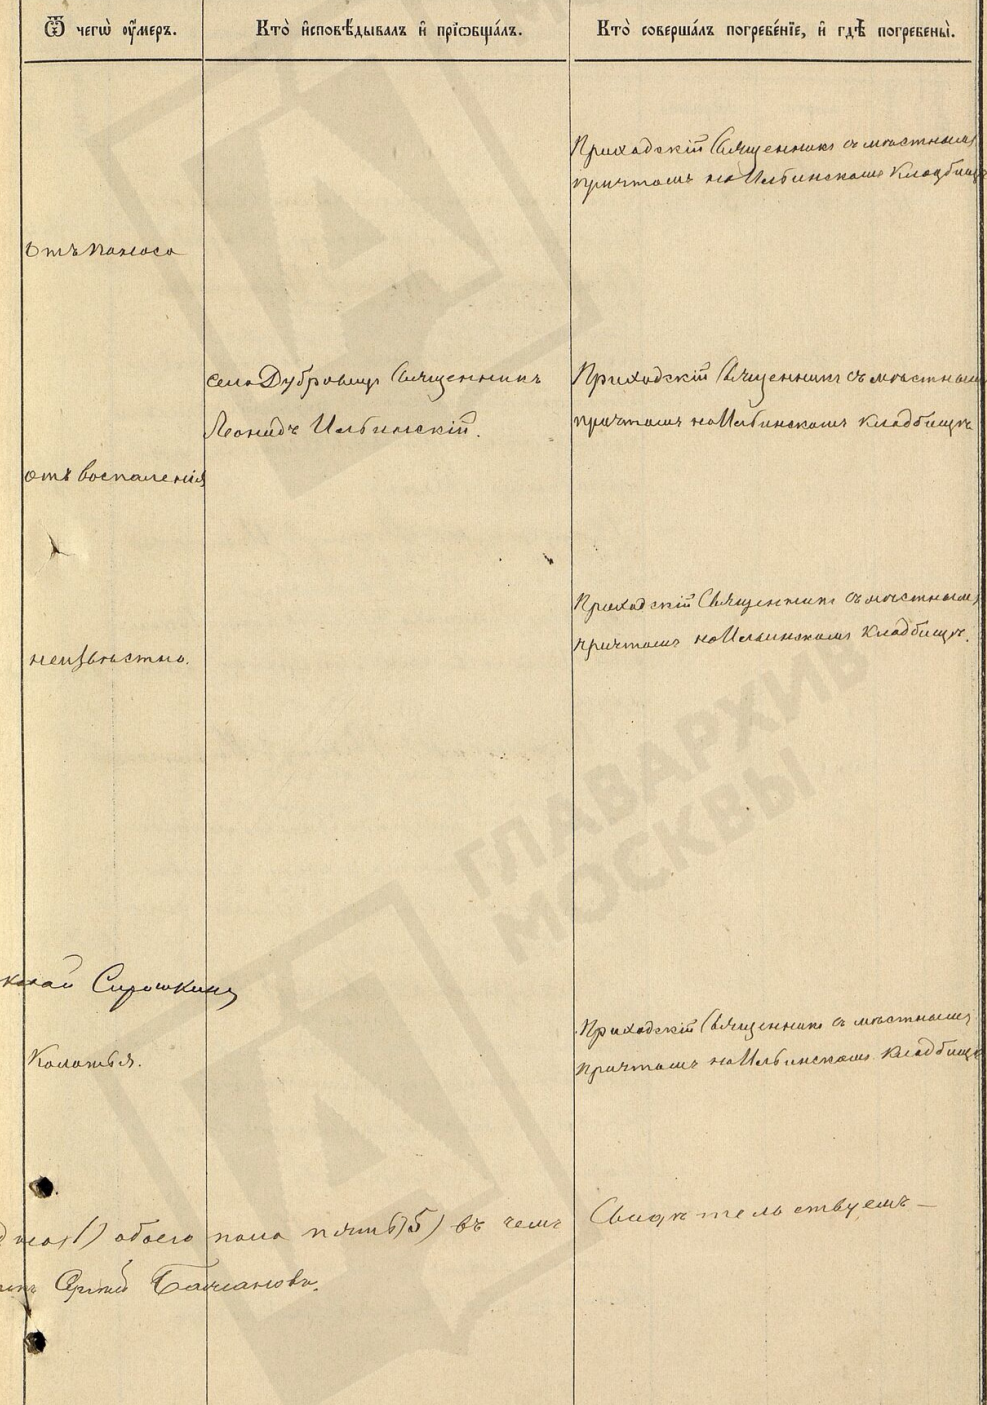 Ѿ чегѡ ᲂу҆́меръ.
Кто̀ и҆сповѣ́дывалъ и҆ прїѡбща́лъ.
Кто̀ соверша́лъ погребе́нїе, и҆ гдѣ̀ погребены̀.
Приходскій Священникъ съ мѣстнымъ
причтомъ на Ильинскомъ Кладбищѣ
Отъ поноса
села Дубровицъ Священникъ
Леонидъ Ильинскій.
Приходскій Священникъ съ мѣстнымъ
причтомъ на Ильинскомъ кладбищѣ
отъ воспаленія
Приходскій Священникъ съ мѣстнымъ
причтомъ на Ильинскомъ Кладбищѣ.
неизвѣстно.
ГЛАВАРХИВ
МОСКВЫ
Сирошкинъ
Приходскій Священникъ съ мѣстнымъ
причтомъ на Ильинскомъ Кладбищѣ
Колотья.
(1) обоего пола пять (5) въ чемъ Свидѣтельствуемъ —
Сергій